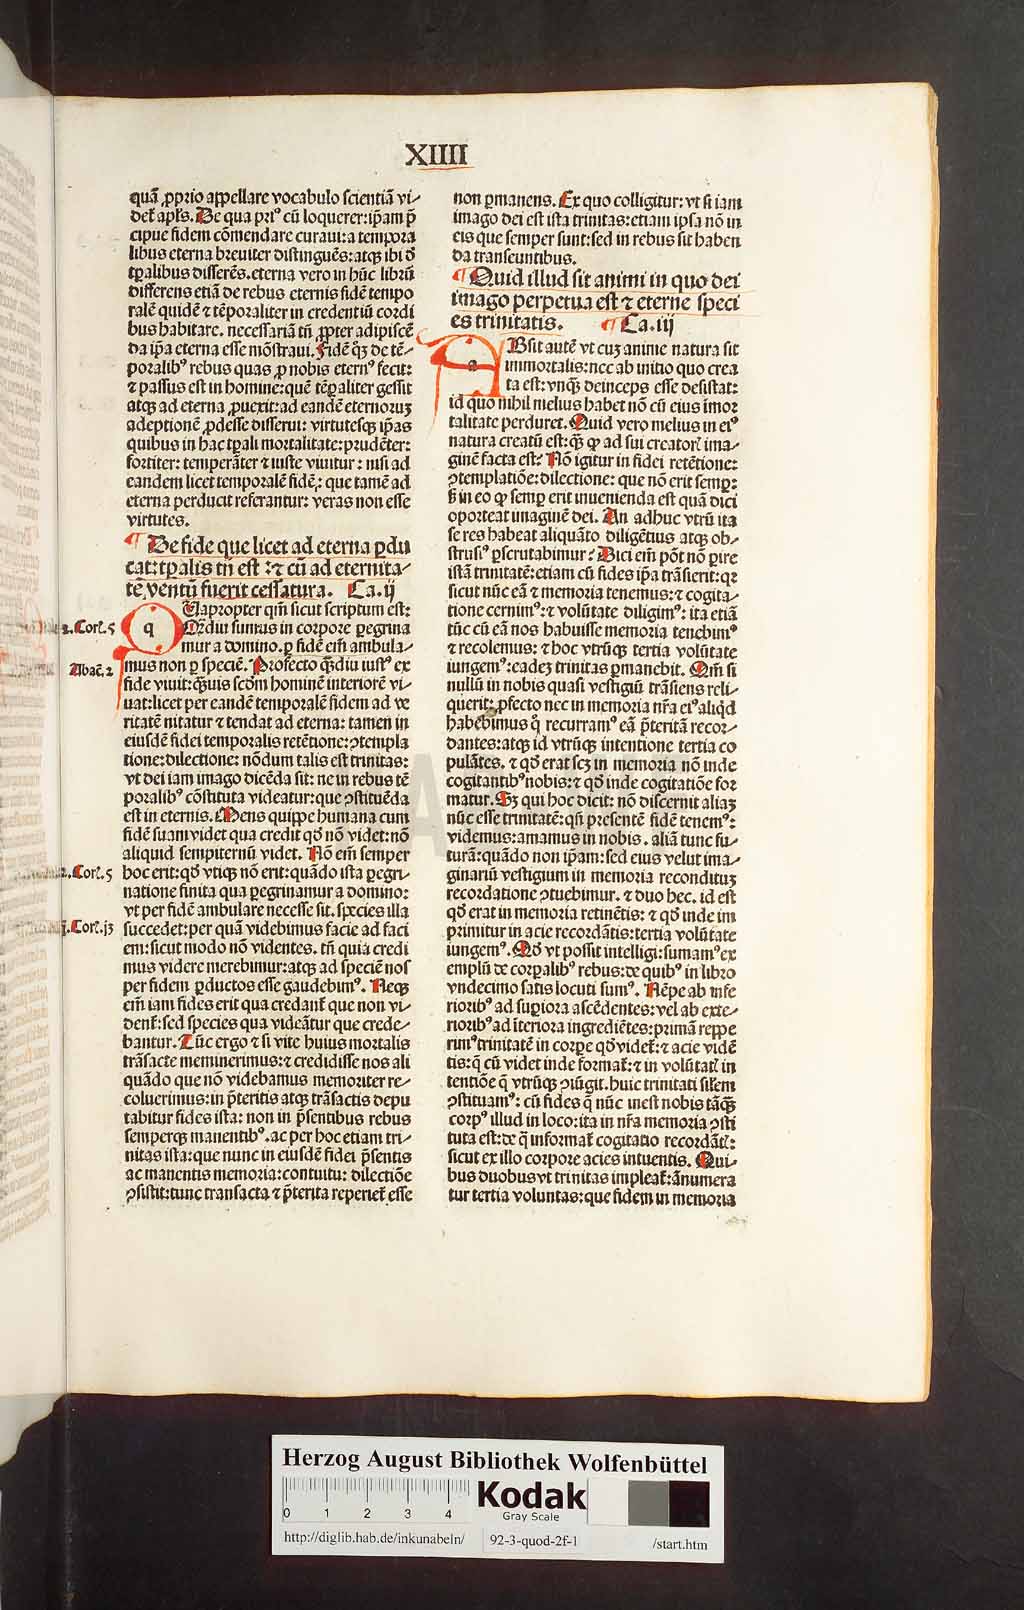 XIIII
quā ꝓprio appellare vocabulo scientiā vi-
det̄ apl's. De qua priꝰ cū loquerer: ip̄am p̄
cipue fidem cōmendare curaui: a tempora
libus eterna breuiter distinguēs: atqꝫ ibi d̄
tꝑalibus disserēs. eterna vero in hūc librū
differens etiā de rebus eternis fidē tempo
ralē quidē ⁊ tēporaliter in credentiū cordi
bus habitare. necessariā tn̄ ꝓpter adipiscē
da ip̄a eterna esse mōstraui. Fidē qꝫ de tē-
poralibꝰ rebus quas ꝓ nobis eternꝰ fecit:
⁊ passus est in homine: quē tēꝑaliter gessit
atqꝫ ad eterna ꝓuexit: ad eandē eternoruꝫ
adeptionē ꝓdesse disserui: virtutesqꝫ ip̄as
quibus in hac tꝑali mortalitate: prudēter:
fortiter: temperāter ⁊ iuste viuitur: nisi ad
eandem licet temporalē fidē: que tamē ad
eterna perducit referantur: veras non esse
virtutes.
¶ De fide que licet ad eterna ꝑdu
cat: tꝑalis tn̄ est: ⁊ cū ad eternita-
tē ventū fuerit cessatura. Ca. ij
q
Uapropter qm̄ sicut scriptum est:
2. Cor. 5
Qm̄diu sumus in corpore ꝑegrina
mur a domino. ꝑ fidē em̄ ambula-
Abac̄. 2
mus non ꝑ speciē. Profecto qm̄diu iustꝰ ex
fide viuit: qm̄uis scdm̄ hominē interiorē vi-
uat: licet per eandē temporalē fidem ad ve
ritatē nitatur ⁊ tendat ad eterna: tamen in
eiusdē fidei temporalis retētione: ꝯtempla
tione: dilectione: nōdum talis est trinitas:
vt dei iam imago dicēda sit: ne in rebus tē
poralibꝰ cōstituta videatur: que ꝯstituēda
est in eternis. Mens quippe humana cum
fidē suam videt qua credit qd̄ nō videt: nō
aliquid sempiternū videt. Nō em̄ semper
Cor. 5
hoc erit: qd̄ vtiqꝫ nō erit: quādo ista ꝑegri-
natione finita qua ꝑegrinamur a domino:
vt per fidē ambulare necesse sit. species illa
Cor. j3
succedet: per quā videbimus facie ad faci
em: sicut modo nō videntes. tn̄ quia credi
mus videre merebimur: atqꝫ ad speciē nos
per fidem ꝑductos esse gaudebimꝰ. Neqꝫ
em̄ iam fides erit qua credant̄ que non vi-
dent̄: sed species qua videātur que crede-
bantur. Tūc ergo ⁊ si vite huius mortalis
trāsacte meminerimus: ⁊ credidisse nos ali
quādo que nō videbamus memoriter re-
coluerimus: in p̄teritis atqꝫ trāsactis depu
tabitur fides ista: non in p̄sentibus rebus
semperqꝫ manentibꝰ. ac per hoc etiam tri-
nitas ista: que nunc in eiusdē fidei p̄sentis
ac manentis memoria: contuitu: dilectiōe
ꝯsistit: tunc transacta ⁊ p̄terita reperiet̄ esse
non ꝑmanens. Ex quo colligitur: vt si iam
imago dei est ista trinitas: etiam ipsa nō in
eis que semper sunt: sed in rebus sit haben
da transeuntibus.
¶ Quid illud sit animi in quo dei
imago perpetua est ⁊ eterne speci
es trinitatis. ¶ Ca. iij
a
Bsit autē vt cuꝫ anime natura sit
immortalis: nec ab initio quo crea
ta est: vnqꝫ deinceps esse desistat:
id quo nihil melius habet nō cū eius īmor
talitate perduret. Quid vero melius in eiꝰ
natura creatū est: qꝫ ꝙ ad sui creatoris ima-
ginē facta est? Nō igitur in fidei retētione:
ꝯtemplatiōe: dilectione: que nō erit semꝑ:
s̄ in eo ꝙ semꝑ erit inuenienda est quā dici
oporteat imaginē dei. An adhuc vtrū ita
se res habeat aliquāto diligētius atqꝫ ob-
strusꝰ ꝑscrutabimur? Dici em̄ pōt nō ꝑire
istā trinitatē: etiam cū fides ip̄a trāsierit: qꝛ
sicut nūc eā ⁊ memoria tenemus: ⁊ cogita-
tione cernimꝰ: ⁊ volūtate diligimꝰ: ita etiā
tūc cū eā nos habuisse memoria tenebimꝰ
⁊ recolemus: ⁊ hoc vtrūqꝫ tertia volūtate
iungemꝰ: eadeꝫ trinitas ꝑmanebit. Qm̄ si
nullū in nobis quasi vestigiū trāsiens reli-
querit: ꝓfecto nec in memoria nr̄a eiꝰ aliqd
habebimus quo recurramꝰ eā p̄teritā recor-
dantes: atqꝫ id vtrūqꝫ intentione tertia co
pulātes. ⁊ qd̄ erat scꝫ in memoria nō inde
cogitantibꝰ nobis: ⁊ qd̄ inde cogitatiōe for
matur. Sꝫ qui hoc dicit: nō discernit aliaꝫ
nūc esse trinitatē: qn̄ presentē fidē tenemꝰ:
videmus: amamus in nobis. aliā tunc fu-
turā: quādo non ip̄am: sed eius velut ima-
ginariū vestigium in memoria reconditum
recordatione ꝯtuebimur. ⁊ duo hec. id est
qd̄ erat in memoria retinētis: ⁊ qd̄ inde im
primitur in acie recordātis: tertia volūtate
iungemꝰ. Qd̄ vt possit intelligi: sumamꝰ ex
emplū de corꝑalibꝰ rebus: de quibꝰ in libro
vndecimo satis locuti sumꝰ. Nēpe ab infe
rioribꝰ ad suꝑiora ascēdentes: vel ab exte-
rioribꝰ ad īteriora ingrediētes: primā repꝑe
rimꝰ trinitatē in corpe qd̄ videt̄: ⁊ acie vidē
tis: q̄ cū videt inde format̄: ⁊ in volūtatis in
tentiōe q̄ vtrūqꝫ ꝯiūgit. huic trinitati sil'em
ꝯstituamꝰ: cū fides q̄ nūc inest nobis tāqꝫ
corpꝰ illud in loco: ita in nr̄a memoria ꝯsti
tuta est: de q̄ informat̄ cogitatio recordātis:
sicut ex illo corpore acies intuentis. Qui-
bus duobus vt trinitas impleat̄: ānumera
tur tertia voluntas: que fidem in memoria
Herzog August Bibliothek Wolfenbüttel
0 1 2 3 4
Kodak
Gray Scale
http://diglib.hab.de/inkunabeln/
92-3-quod-2f-1
/start.htm